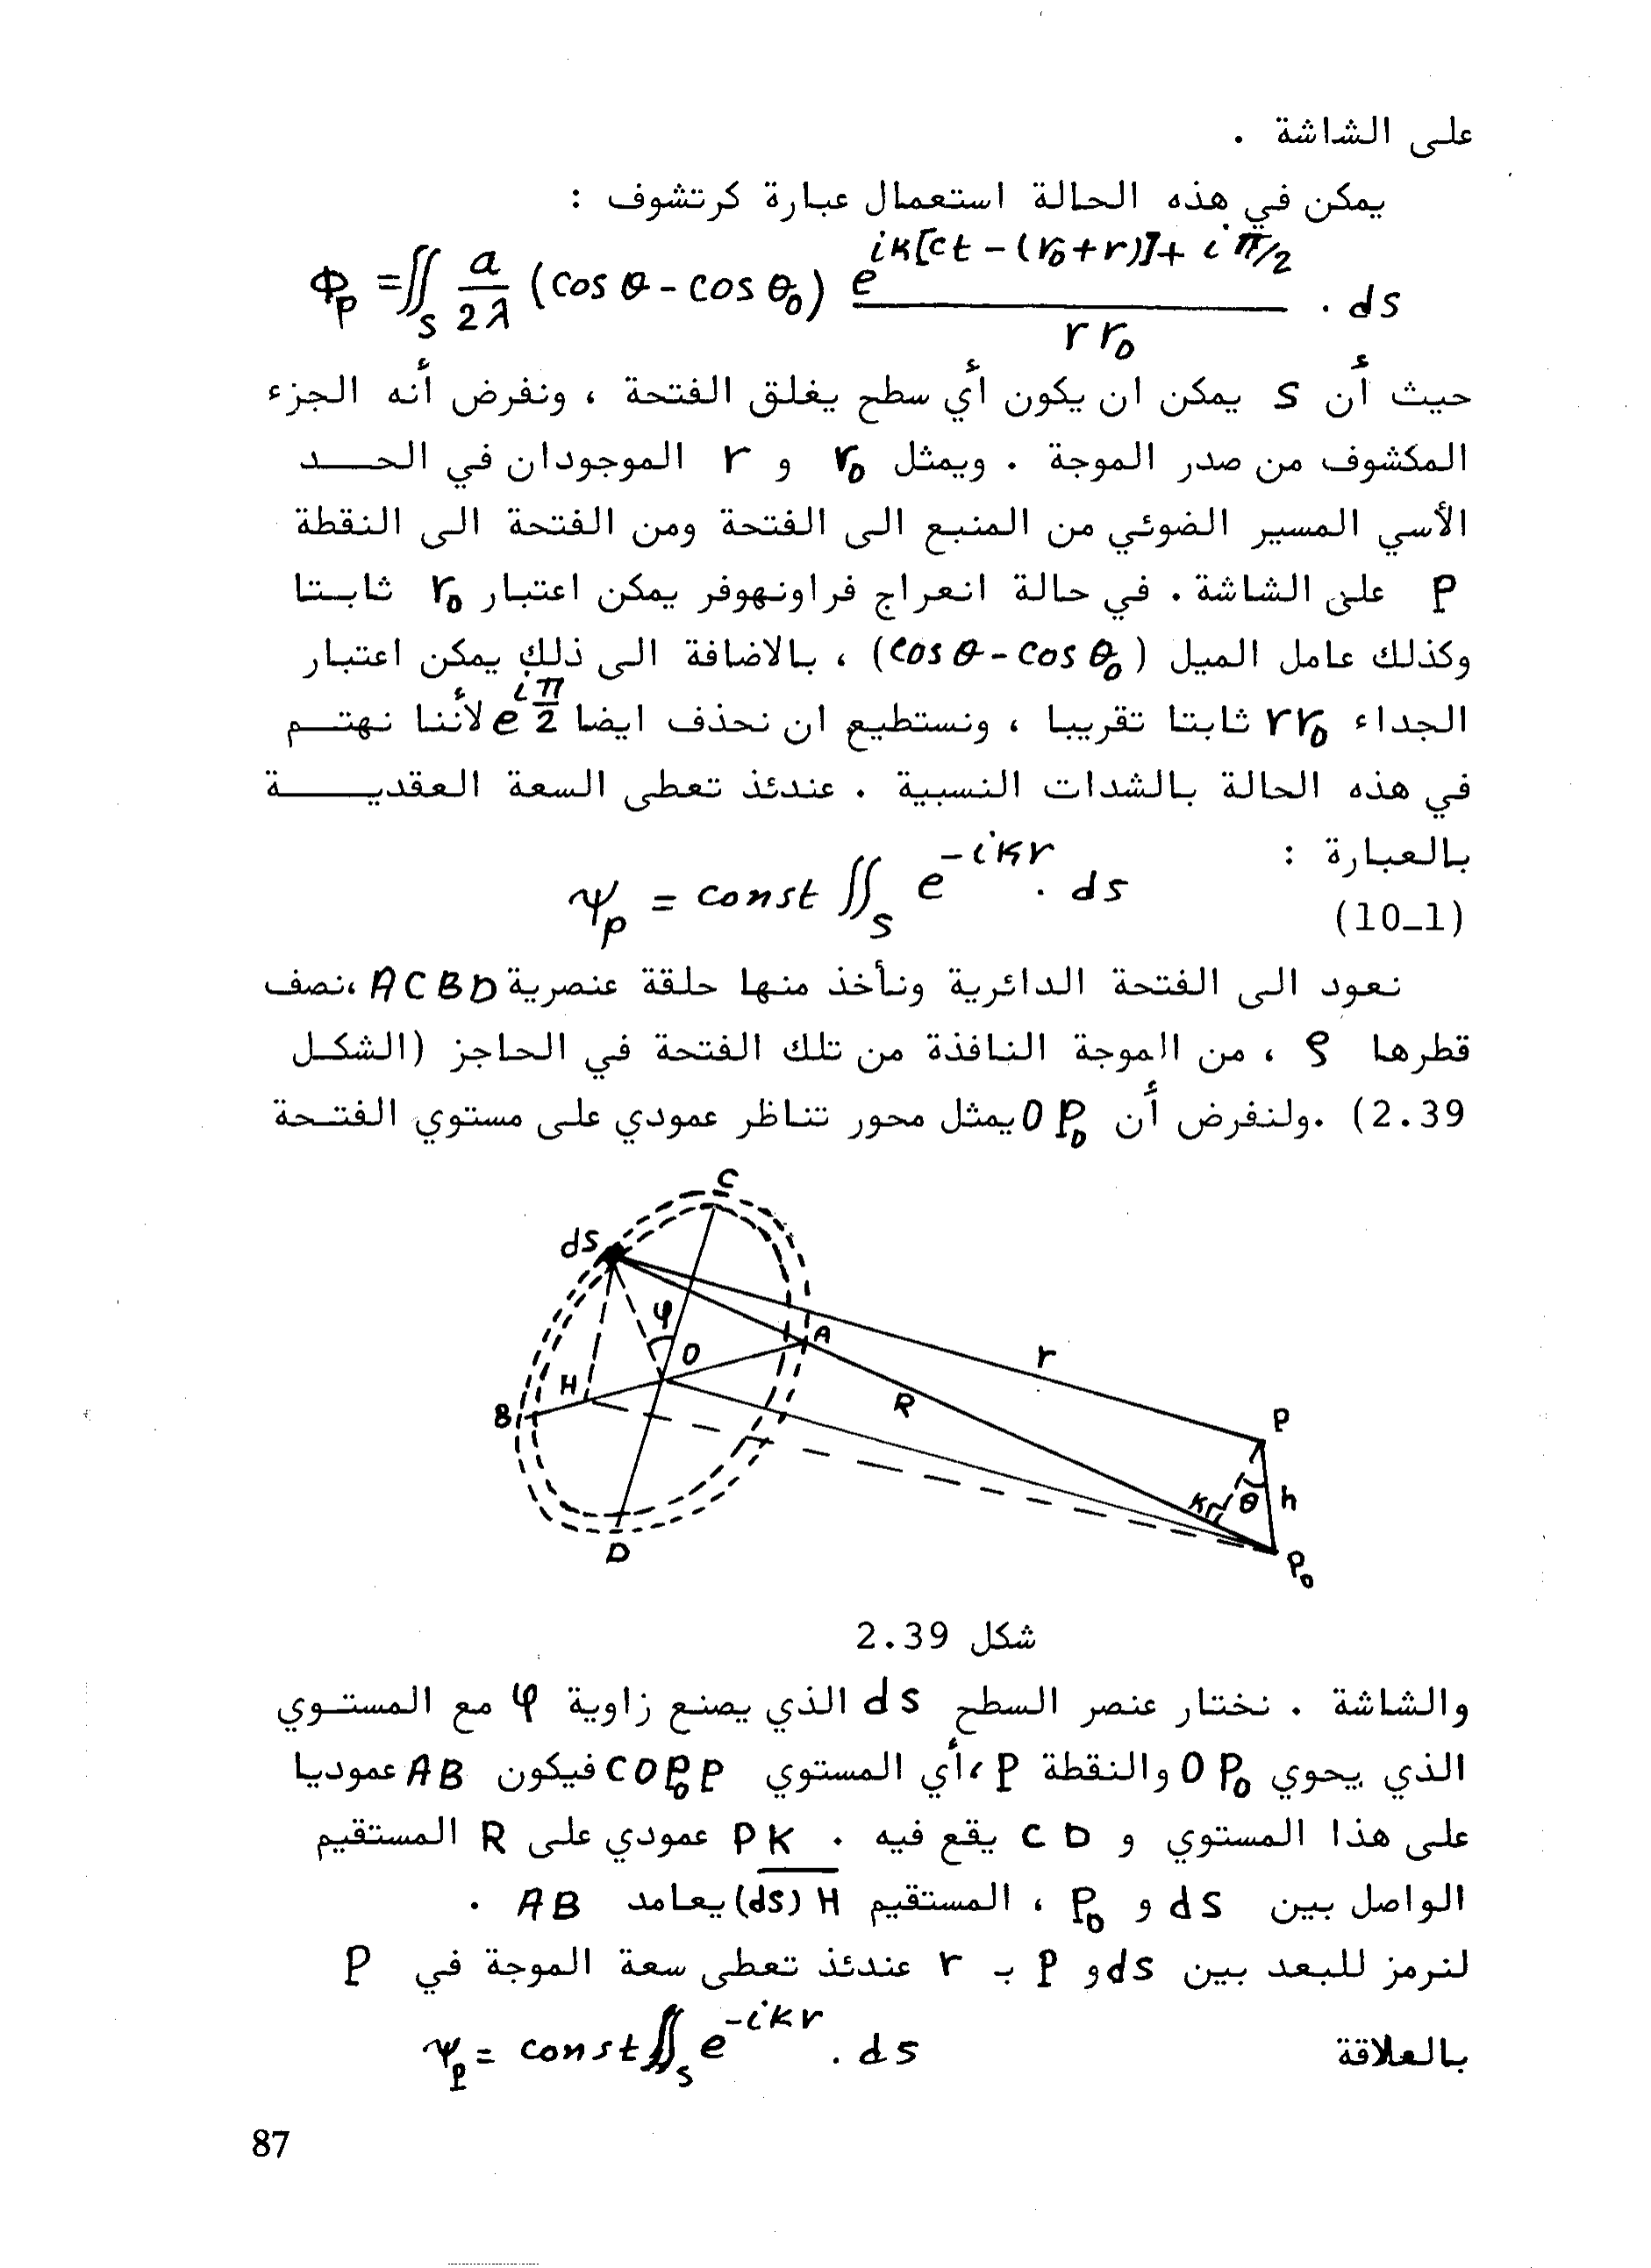 على الشاشة .
يمكن في هذه الحالة استعمال عبارة كرتشوف :
Φp = ∬s a/2λ (cos θ - cos θ0) e^{iK[ct - (r0 + r)] + iπ/2} / r r0 . ds
حيث أن S يمكن ان يكون أي سطح يغلق الفتحة ، ونفرض أنه الجزء
المكشوف من صدر الموجة . ويمثل r0 و r الموجودان في الحـــد
الأسي المسير الضوئي من المنبع الى الفتحة ومن الفتحة الى النقطة
P على الشاشة . في حالة انعراج فراونهوفر يمكن اعتبار r0 ثابـتا
وكذلك عامل الميل (cos θ - cos θ0) ، بالاضافة الى ذلك يمكن اعتبار
الجداء rr0 ثابتا تقريبا ، ونستطيع ان نحذف ايضا e^{iπ/2} لأننا نهتــم
في هذه الحالة بالشدات النسبية . عندئذ تعطى السعة العقديــــة
بالعبارة :
(10_1) ψp = const ∬s e^{-iKr} . ds
نعود الى الفتحة الدائرية ونأخذ منها حلقة عنصرية ACBD ،نصف
قطرها ρ ، من الموجة النافذة من تلك الفتحة في الحاجز (الشكـل
2.39) .ولنفرض أن OP0 يمثل محور تناظر عمودي على مستوي الفتـحة
C
dS
φ
O
A
H
B
r
R
P
K
θ
h
D
P0
شكل 2.39
والشاشة . نختار عنصر السطح ds الذي يصنع زاوية φ مع المستـوي
الذي يحوي OP0 والنقطة P ،أي المستوي COP0P فيكون AB عموديا
على هذا المستوي و CD يقع فيه . PK عمودي على R المستقيم
الواصل بين ds و P0 ، المستقيم (ds)H يعامد AB .
لنرمز للبعد بين ds و P بـ r عندئذ تعطى سعة الموجة في P
بالعلاقة ψp = const ∬s e^{-ikr} . ds
87